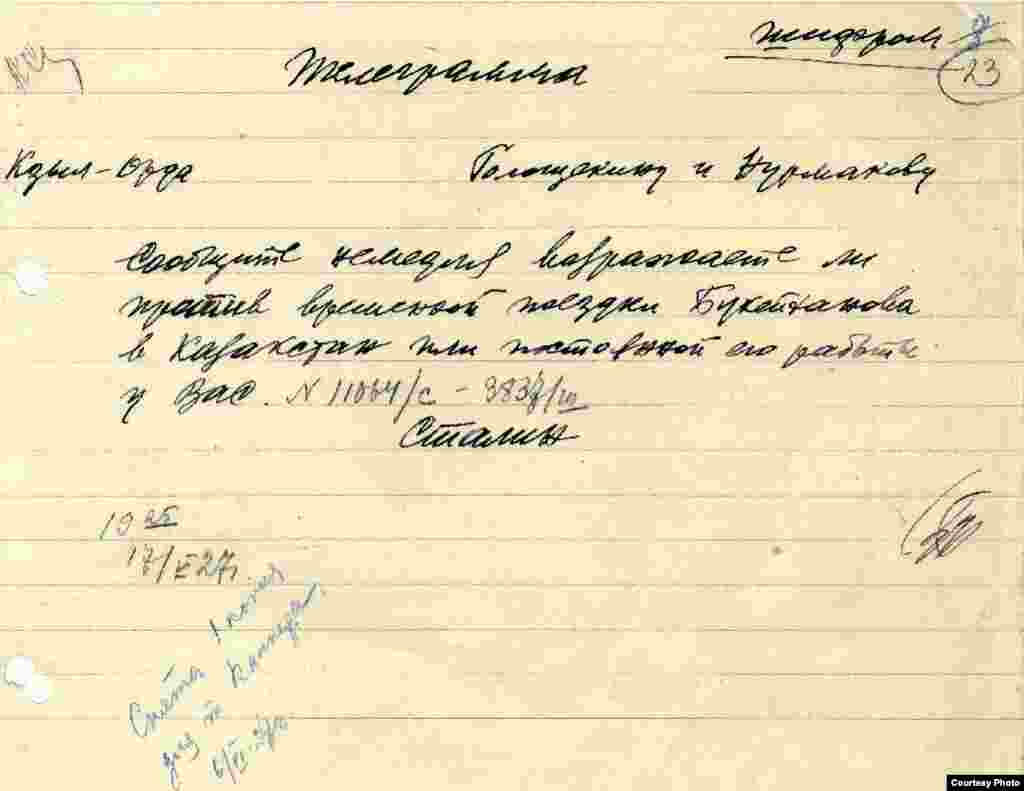 шифром
23
Телеграмма
Кзыл-Орда Голощекину и Нурмакову
Сообщите немедля возражаете ли
против временной поездки Букейханова
в Казакстан или постоянной его работы
у Вас. N 11064/с
Сталин
19 25
17/V 27
Снята 1 копия
для т.
6/VI-27
Courtesy Photo